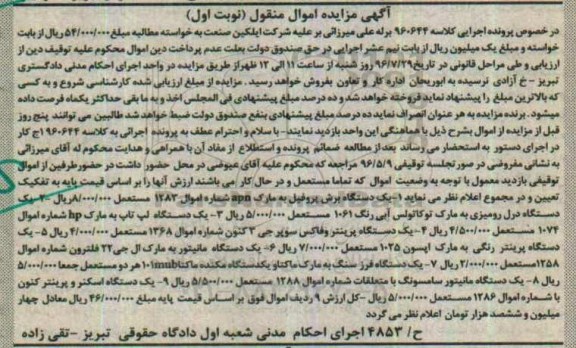 آگهی مزایده اموال منقول (نوبت اول)
در خصوص پرونده اجرایی کلاسه ۹۶۰۶۴۴ برله علی میرزائی بر علیه شرکت ایلکین صنعت به خواسته مطالبه مبلغ ۵۴/۰۰۰/۰۰۰ ریال از بابت
خواسته و مبلغ یک میلیون ریال از بابت نیم عشر اجرایی در حق صندوق دولت بعلت عدم پرداخت دین اموال محکوم علیه توقیف دین از
ارزیابی و طی مراحل قانونی در تاریخ ۹۶/۷/۲۹ روز شنبه از ساعت ۱۱ الی ۱۲ ظهر از طریق مزایده در واحد اجرای احکام مدنی دادگستری
تبریز - خ آزادی نرسیده به ابوریحان اداره کار و تعاون بفروش خواهد رسید. مزایده از مبلغ ارزیابی شده کارشناسی شروع و به کسی
که بالاترین مبلغ را پیشنهاد نماید فروخته خواهد شد و ده درصد مبلغ پیشنهادی فی المجلس اخذ و به ما بقی حداکثر یکماه فرصت داده
میشود. برنده مزایده به هر عنوان انصراف نماید ده درصد مبلغ پیشنهادی بنفع صندوق دولت ضبط خواهد شد طالبین می توانند پنج روز
قبل از مزایده از اموال بشرح ذیل با هماهنگی این واحد بازدید نمایند. - با سلام و احترام عطف به پرونده اجرائی به کلاسه ۹۶۰۶۴۴ ج کار
در اجرای دستور به استحضار می رساند بعد از مطالعه ضمائم پرونده و استطلاع از مفاد آن با همراهی و هدایت محکوم له آقای میرزائی
به نشانی مفروضی در صورتجلسه توقیفی ۹۶/۵/۹ مراجعه که محکوم علیه آقای عیوضی در محل حضور داشت در حضور طرفین از اموال
توقیفی بازدید معمول با توجه به وضعیت اموال که تماما مستعمل و در حال کار می باشند ارزش آنها را بر اساس قیمت پایه به تفکیک
تعیین و در مجموع اعلام نظر می نماید ۱- یک دستگاه برش پروفیل به مارک apn شماره اموال ۱۲۸۷ مستعمل ۸/۰۰۰/۰۰۰ ریال ۲- یک
دستگاه دریل رومیزی به مارک توکاتولس آبی رنگ ۱۰۶۱ مستعمل ۵/۰۰۰/۰۰۰ ریال ۳- یک دستگاه لپ تاپ به مارک hp شماره اموال
۱۰۷۴ مستعمل ۴/۵۰۰/۰۰۰ ریال ۴- یک دستگاه پرینتر وفاکس سوپر جی ۳ کنون شماره اموال ۱۳۶۸ مستعمل ۴/۰۰۰/۰۰۰ ریال ۵- یک
دستگاه پرینتر رنگی به مارک اپسون ۱۰۲۵ مستعمل ۷/۰۰۰/۰۰۰ ریال ۶- یک دستگاه مانیتور به مارک ال جی ۲۲ فلترون شماره اموال
۱۲۵۸ مستعمل ۲/۰۰۰/۰۰۰ ریال ۷- یک دستگاه فرز سنگ به مارک ماکتا و یکدستگاه مکنده ماکتا هر دو مستعمل جمعا ۵/۰۰۰/۰۰۰
ریال ۸- یک دستگاه مانیتور سامسونگ با متعلقات شماره اموال ۱۲۸۸ مستعمل ۵/۵۰۰/۰۰۰ ریال ۹- یک دستگاه اسکنر و پرینتر کنون
با شماره اموال ۱۲۸۶ مستعمل ۵/۰۰۰/۰۰۰ ریال - کل ارزش ۹ ردیف اموال فوق بر اساس قیمت پایه مبلغ ۴۶/۰۰۰/۰۰۰ ریال معادل چهار
میلیون و ششصد هزار تومان اعلام نظر می گردد
ح/ ۴۸۵۳ اجرای احکام مدنی شعبه اول دادگاه حقوقی تبریز - تقی زاده